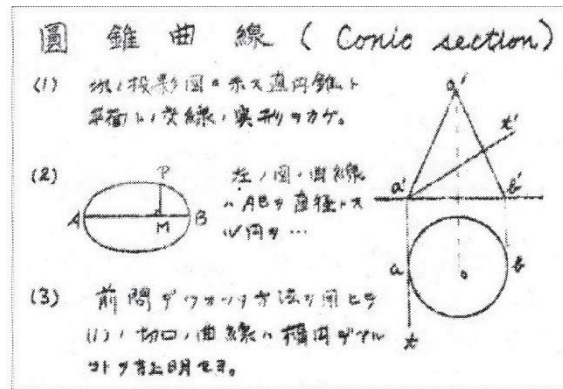 圓錐曲線 (Conic section)
(1) 次ノ投影図ニ示ス直円錐ト
平面トノ交線ノ実形ヲカケ。
o'
t'
a' b'
(2) 左ノ図ノ曲線
ハABヲ直径トス
ル円ヲ…
P
A M B
a o b
t
(3) 前問デワカッタ方法ヲ用ヒテ
(1)ノ切口ノ曲線ハ楕円デアル
コトヲ証明セヨ。